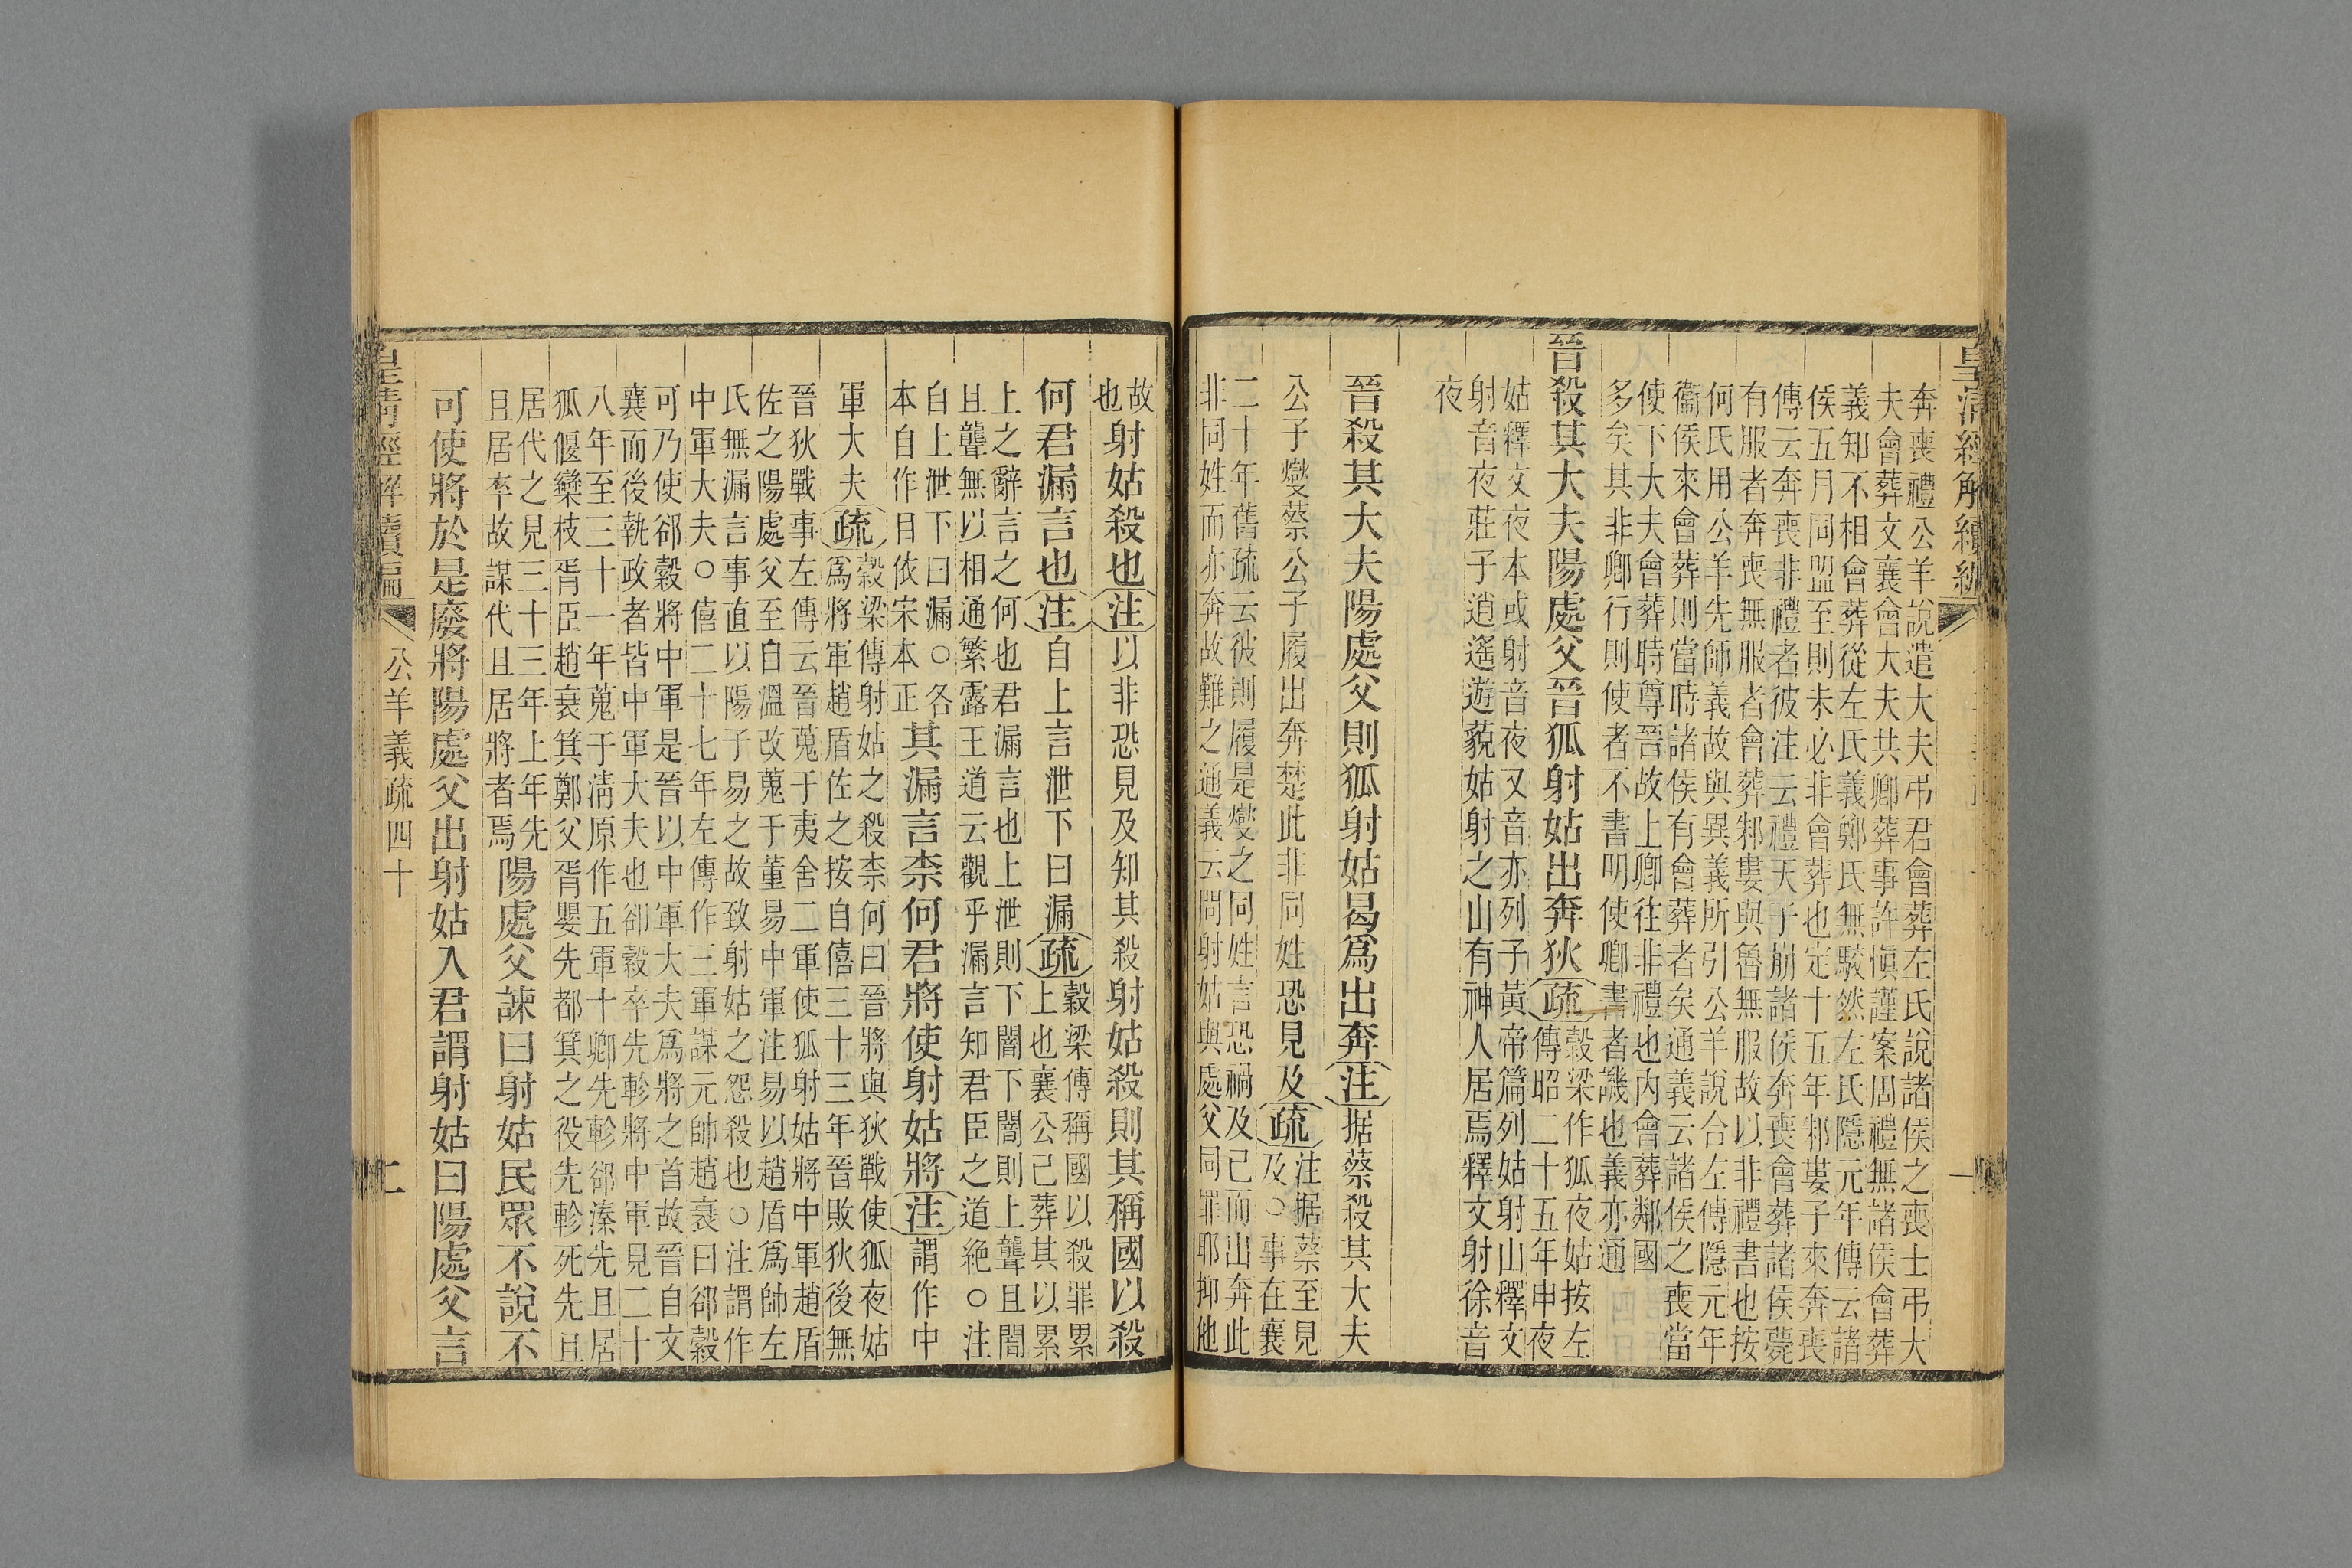 皇清經解續編
奔喪禮公羊說遣大夫弔君會葬左氏說諸侯之喪士弔大
夫會葬文襄會大夫共卿葬事許愼謹案周禮無諸侯會葬
義知不相會葬從左氏義鄭氏無駮然左氏隱元年傳云諸
侯五月同盟至則未必非會葬也定十五年邾婁子來奔喪
傳云奔喪非禮者彼注云禮天子崩諸侯奔喪會葬諸侯薨
有服者奔喪無服者會葬邾婁與魯無服故以非禮書也按
何氏用公羊先師義故與異義所引公羊說合左傳隱元年
衞侯來會葬則當時諸侯有會葬者矣通義云諸侯之喪當
使下大夫會葬時尊晉故上卿往非禮也內會葬鄰國
多矣其非卿行則使者不書明使卿書者譏也義亦通
晉殺其大夫陽處父晉狐射姑出奔狄
疏
穀梁作狐夜姑按左
傳昭二十五年申夜
姑釋文夜本或射音夜又音亦列子黃帝篇列姑射山釋文
射音夜莊子逍遙遊藐姑射之山有神人居焉釋文射徐音
夜
晉殺其大夫陽處父則狐射姑曷爲出奔
注
据蔡殺其大夫
公子燮蔡公子履出奔楚此非同姓恐見及
疏
注据蔡至見
及○事在襄
二十年舊疏云彼則履是燮之同姓言恐禍及己而出奔此
非同姓而亦奔故難之通義云問射姑與處父同罪耶抑他
一
故
也
射姑殺也
注
以非恐見及知其殺
射姑殺則其稱國以殺
何君漏言也
注
自上言泄下曰漏
疏
穀梁傳稱國以殺罪累
上也襄公已葬其以累
上之辭言之何也君漏言也上泄則下闇下闇則上聾且闇
且聾無以相通繁露王道云觀乎漏言知君臣之道絶○注
自上泄下曰漏○各
本自作日依宋本正
其漏言柰何君將使射姑將
注
謂作中
軍大夫
疏
穀梁傳射姑之殺柰何曰晉將與狄戰使狐夜姑
爲將軍趙盾佐之按自僖三十三年晉敗狄後無
晉狄戰事左傳云晉蒐于夷舍二軍使狐射姑將中軍趙盾
佐之陽處父至自溫改蒐于董易中軍注易以趙盾爲帥左
氏無漏言事直以陽子易之故致射姑之怨殺也○注謂作
中軍大夫○僖二十七年左傳作三軍謀元帥趙衰曰郤縠
可乃使郤縠將中軍是晉以中軍大夫爲將之首故晉自文
襄而後執政者皆中軍大夫也郤縠卒先軫將中軍見二十
八年至三十一年蒐于淸原作五軍十卿先軫郤溱先且居
狐偃欒枝胥臣趙衰箕鄭父胥嬰先都箕之役先軫死先且
居代之見三十三年上年先
且居卒故謀代且居將者焉
陽處父諫曰射姑民眾不說不
可使將於是廢將陽處父出射姑入君謂射姑曰陽處父言
皇淸經解續編
公羊義疏四十
二